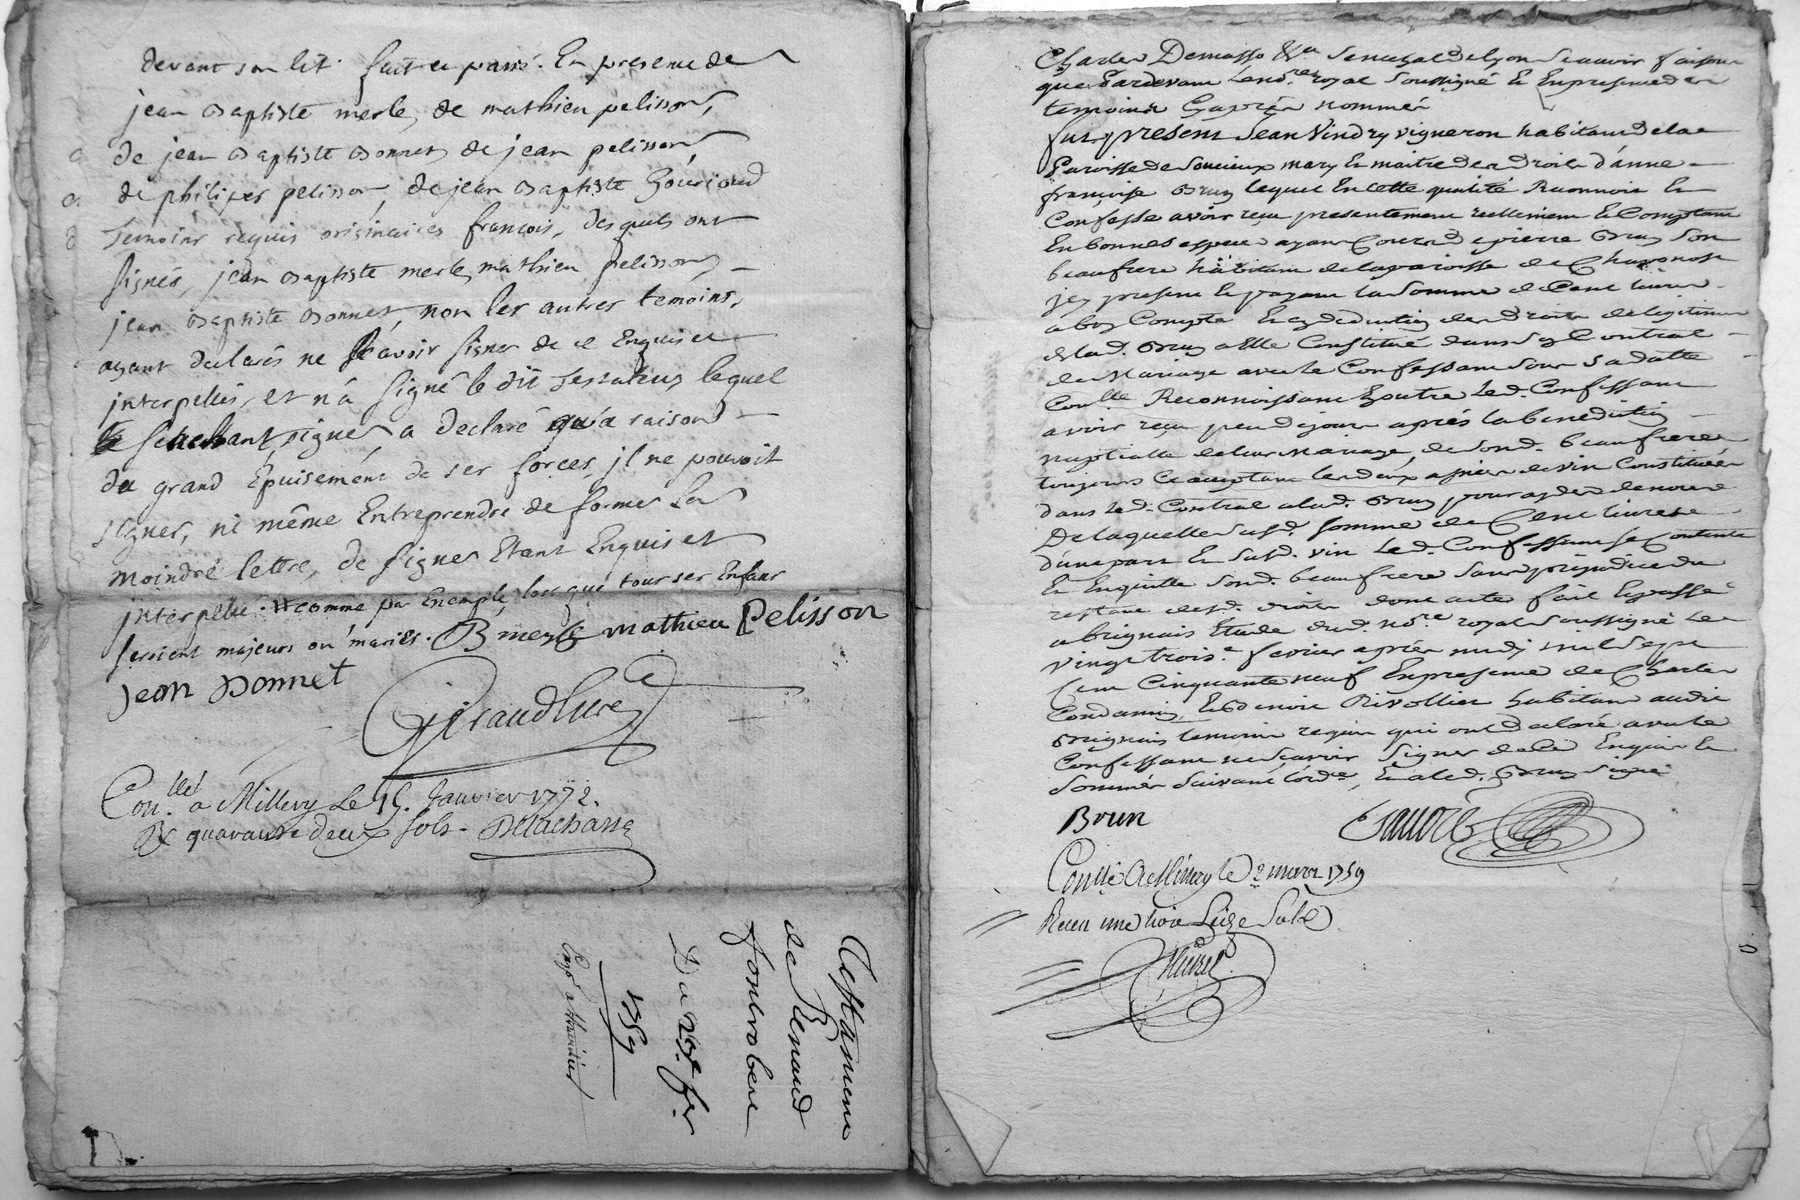 devant son lit. fait et passé. En presence de
jean Baptiste merle, de mathieu pelisson,
de jean Baptiste Bonnet, de jean pelisson
de philipes pelisson, de jean Baptiste Gouriond
Temoins requis originaires françois, desquels ont
signés, jean Baptiste merle, mathieu pelisson,
jean Baptiste Bonnet, non les autres temoins,
ayant declarés ne sçavoir signer de ce Enquis et
interpellés, et n'a signé le dit Testateur lequel
sçachant signer, a declaré qu'a raison
du grand Epuisement de ses forces, jl ne pouvoit
signer, ni même Entreprendre de former la
moindre lettre, de signer Etant Enquis et
jnterpellé. # comme par Exemple, lors que tous ses Enfans
seroient majeurs ou mariés. B merle mathieu Pelisson
Jean Bonnet
Giraud Curé
Con.llé a Millery Le 15. Janvier 1772.
R quarante deux sols. Delachassé
Testament
de Renaud
fontrobert
Du 20e fer
1759
Charles Demasso &ca Senechal de Lyon sçavoir faisons
que Pardevant Le no.re royal soussigné Et En presence des
temoins Cy après nommés
fut present Jean Vindry vigneron habitant de la
Paroisse de Soucieux mary Et maitre des Droits d'anne
françoise Brun lequel En cette qualité Reconnoit Et
Confesse avoir reçu presentement reellement Et Comptant
En bonnes especes ayant Cours de pierre Brun son
beaufrere habitant de la paroisse de Chaponost
jcy present Et payant la somme de Cent livres
a bon Compte Et en deduction des Droits de legitime
de lad. Brun a Elle Constitué dans son Contrat
de Mariage avec le Confessant sous sa datte
Con.llé Reconnoissant En outre Led. Confessant
avoir reçu peu de jours après la benediction
nuptialle de leur Mariage, de sond. beaufrere
toujours Comptant les deux asnées de vin Constituées
dans led. Contrat a lad. Brun
De laquelle susd. somme de Cent livres
d'une part Et susd. vin Led. Confessant se Contente
Et En quitte sond. beaufrere sans prejudice du
restant desd. droits dont acte fait Et passé
a brignais Etude dud. no.re royal soussigné Le
vingt trois.e fevrier après midy mil sept
Cent Cinquante neuf En presence de Charles
Condamin, Et Benoit Rivollier habitans aud.
Brignais temoins requis qui ont declaré avec le
Confessant ne sçavoir signer de ce Enquis Et
Sommés Suivant l'ord.ce, Et a led. Brun signé
Brun
Con.llé a Millery le 2 mars 1759
Reçu une livre Seize Sols